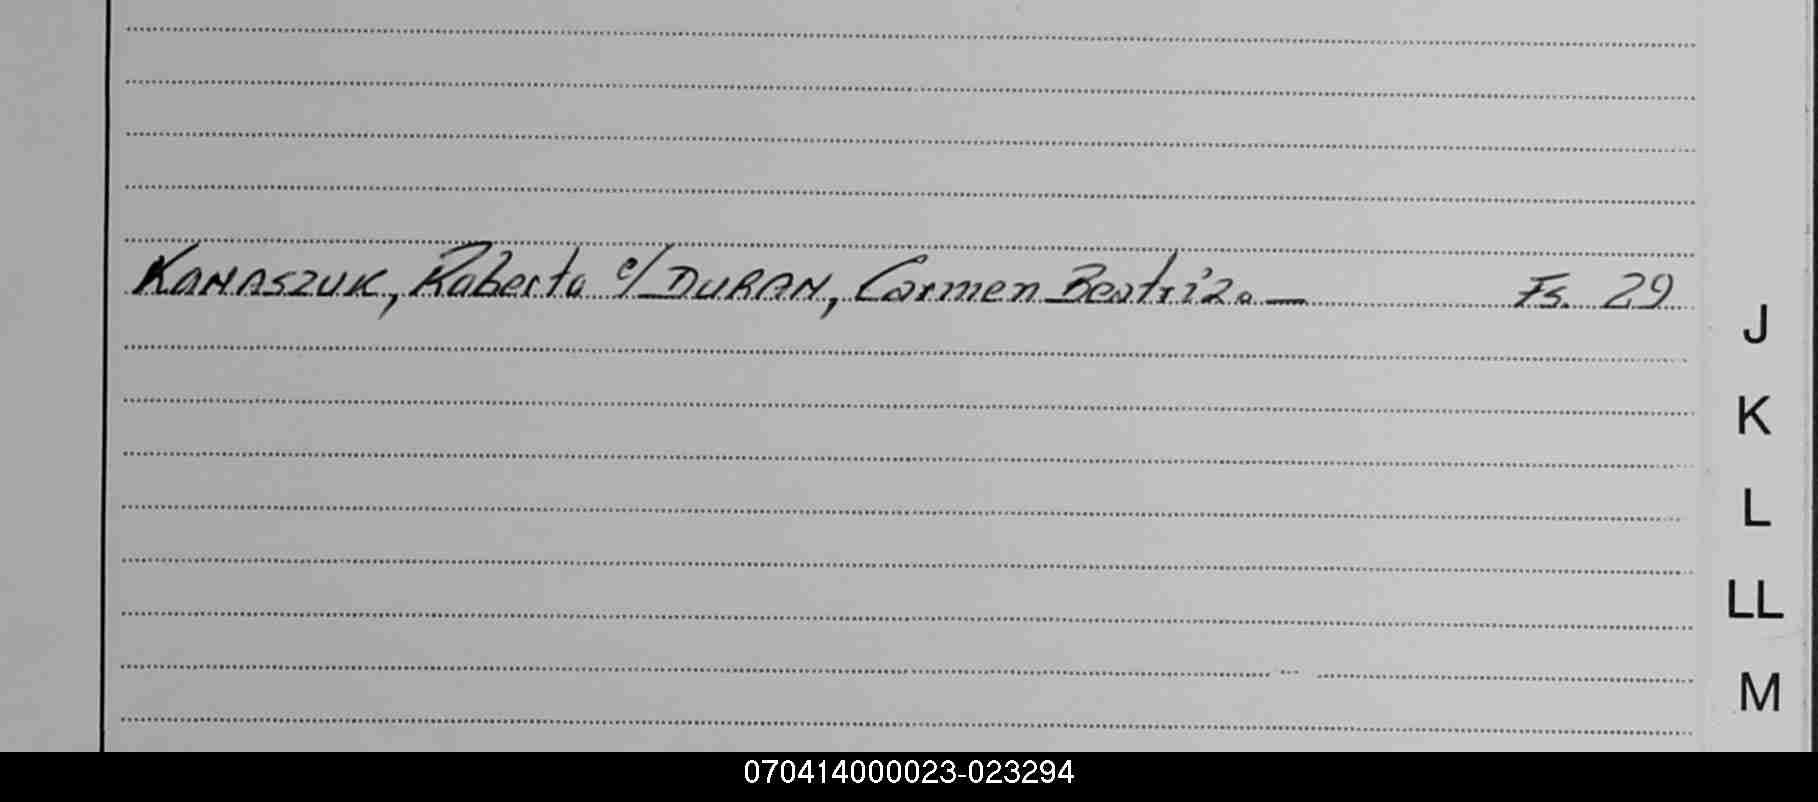 KANASZUK, Roberto c/ DURAN, Carmen Beatriz.— Fs. 29
J
K
L
LL
M
070414000023-023294